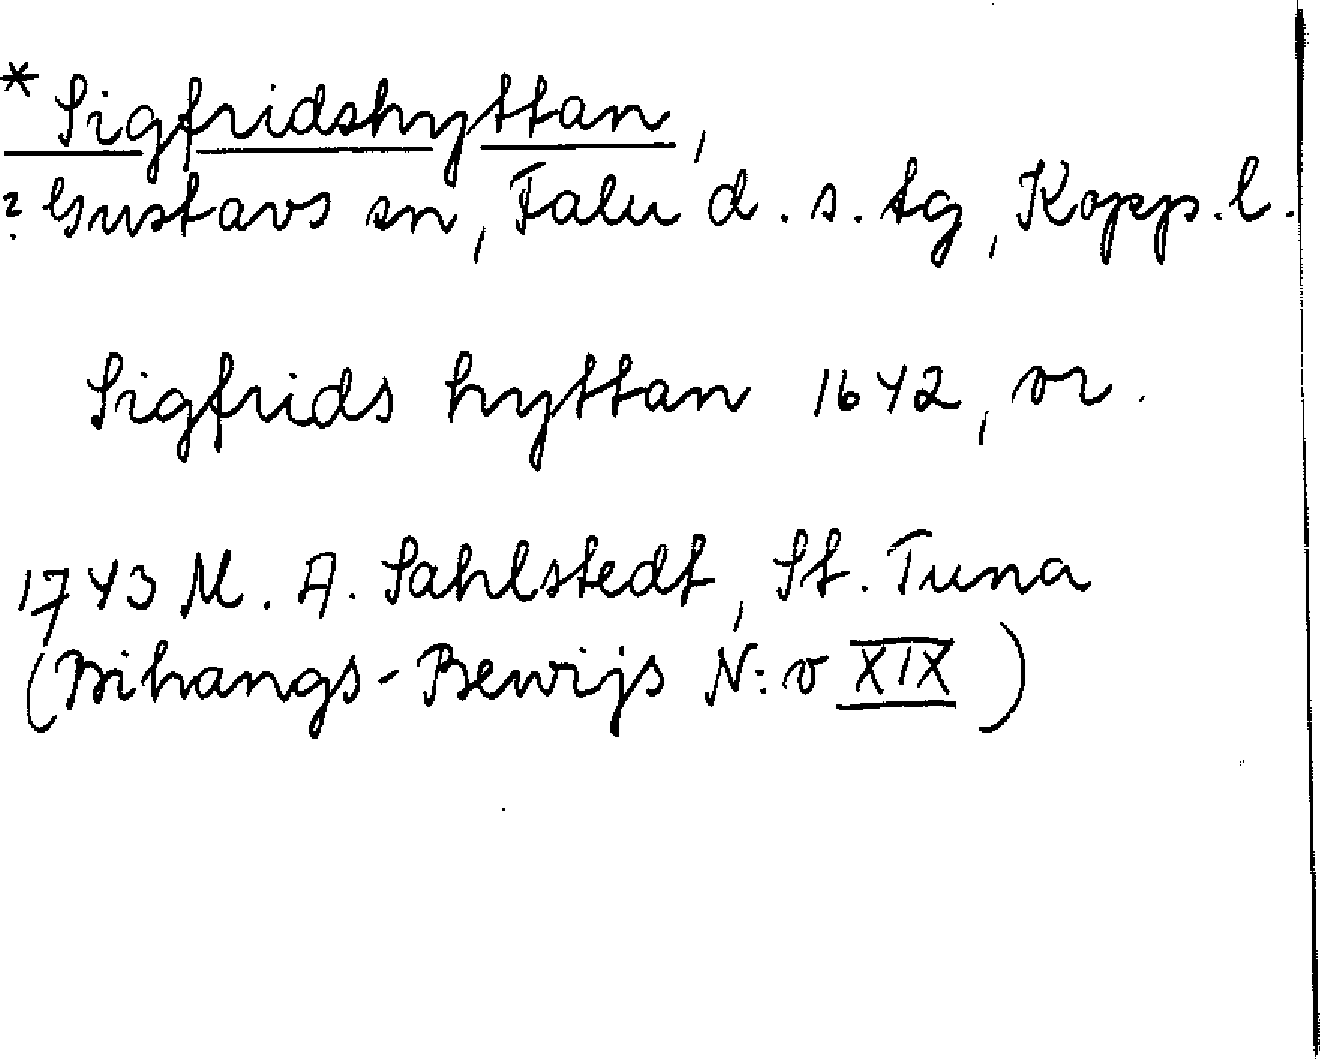 * Sigfridshyttan,
? Gustavs sn, Falu d. s. tg, Kopp. l.
Sigfrids hyttan 1642, or.
1743 M. A. Sahlstedt, St. Tuna
(Bihangs-Bewijs N:o XIX)